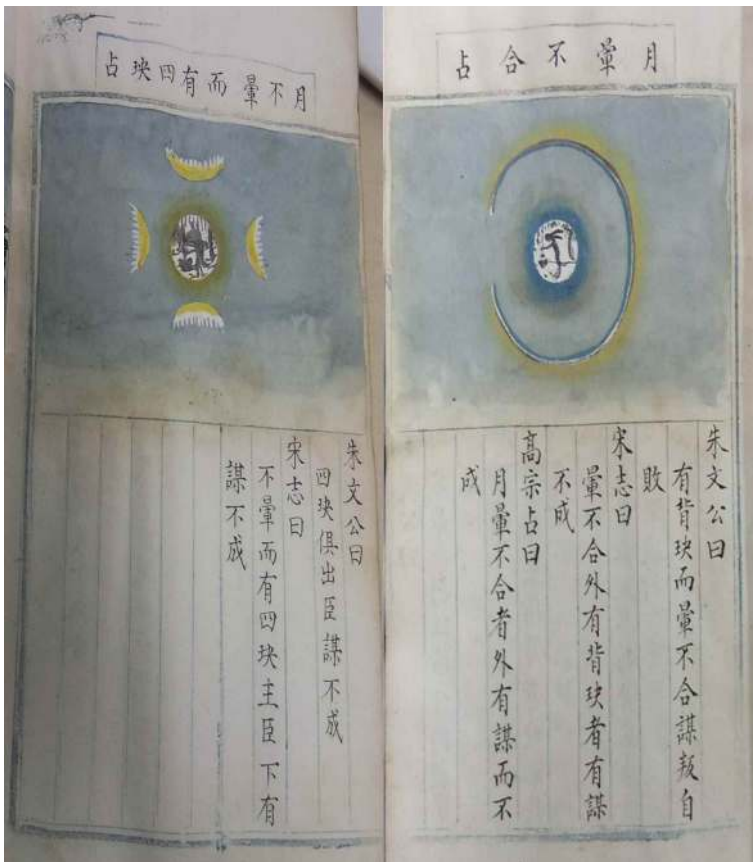 月暈不合占
朱文公曰
有背玦而暈不合謀叛自
敗
宋志曰
暈不合外有背玦者有謀
不成
高宗占曰
月暈不合者外有謀而不
成
月不暈而有四玦占
朱文公曰
四玦俱出臣謀不成
宋志曰
不暈而有四玦主臣下有
謀不成